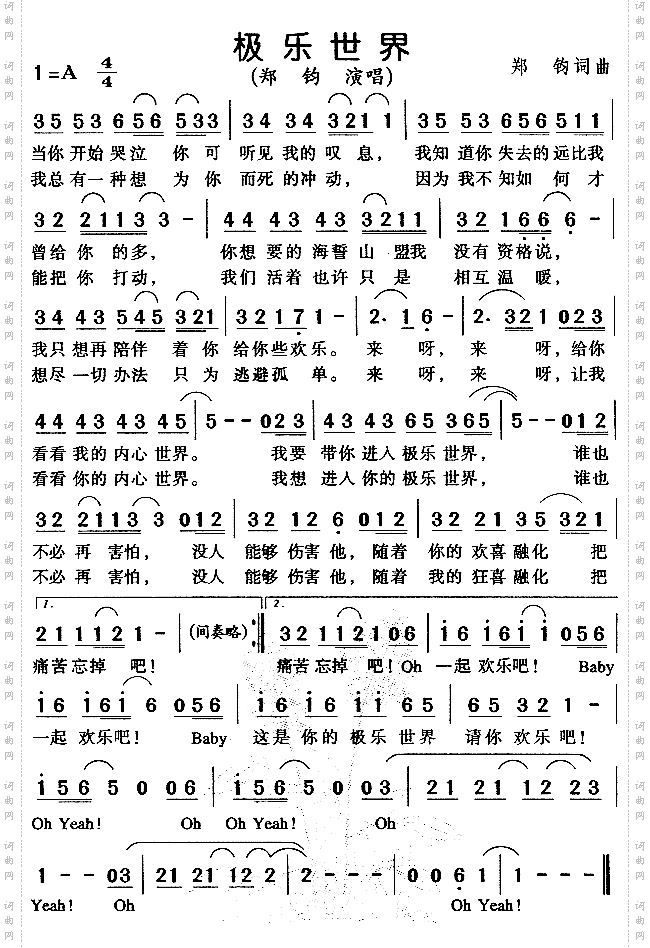 极乐世界
1=A 4/4
(郑 钧 演唱)
郑 钧 词 曲
35 53 656 533 | 34 34 321 1 | 35 53 656 511 |
当你 开始 哭泣 你 可 听见 我的 叹 息， 我知 道你 失去的 远比我
我总 有一 种想 为 你 而死 的冲 动， 因为 我不 知如 何才
32 2113 3 - | 44 43 43 3211 | 32 166 6 - |
曾给 你 的多， 你想 要的 海誓 山 盟我 没有 资格说，
能把 你 打动， 我们 活着 也许 只 是 相互 温 暖，
34 43 545 321 | 32 17 1 - | 2. 16 - | 2. 321 023 |
我只 想再 陪伴 着 你 给你 些欢 乐。 来 呀， 来 呀，给你
想尽 一切 办法 只 为 逃避 孤 单。 来 呀， 来 呀，让我
44 43 43 45 | 5 - - 023 | 43 43 65 365 | 5 - - 012 |
看看 我的 内心 世界。 我要 带你 进入 极乐 世界， 谁也
看看 你的 内心 世界。 我想 进入 你的 极乐 世界， 谁也
32 2113 3 012 | 32 12 6 012 | 32 21 35 321 |
不必 再 害怕， 没人 能够 伤害 他，随着 你的 欢喜 融化 把
不必 再 害怕， 没人 能够 伤害 他，随着 我的 狂喜 融化 把
1. 2.
21 1121 1 - (间奏略) :‖ 32 112106 | i6 i6i i 056 |
痛苦 忘掉 吧！ 痛苦 忘掉 吧！Oh 一起 欢乐吧！ Baby
i6 i6i 6 056 | i6 i6 65 65 | 65 32 1 - |
一起 欢乐吧！ Baby 这是 你的 极乐 世界 请你 欢乐 吧！
i56 5 0 06 | i56 5 0 03 | 21 21 12 23 |
Oh Yeah! Oh Oh Yeah! Oh
1 - - 03 | 21 21 12 2 | 2 - 0 061 | 1 - - - ‖
Yeah! Oh Oh Yeah!
词曲网